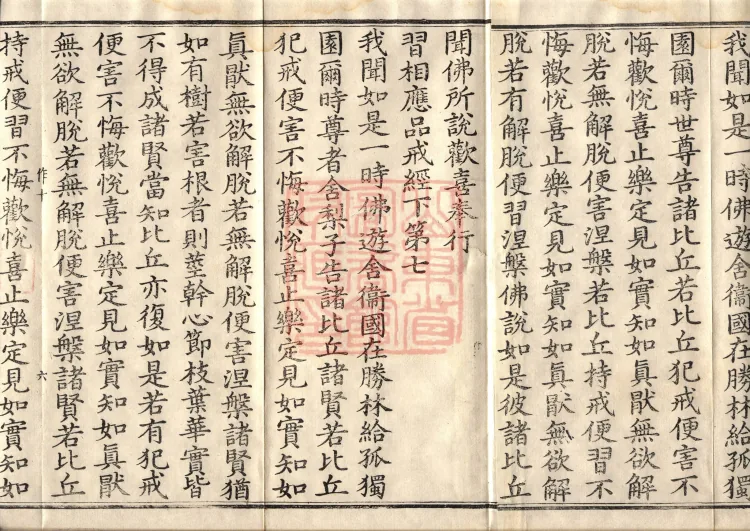 我聞如是一時佛遊舍衞國在勝林給孤獨
園爾時世尊告諸比丘若比丘犯戒便害不
悔歡悅喜止樂定見如實知如真猒無欲解
脫若無解脫便害涅槃若比丘持戒便習不
悔歡悅喜止樂定見如實知如真猒無欲解
脫若有解脫便習涅槃佛說如是彼諸比丘
聞佛所說歡喜奉行
習相應品戒經下第七
我聞如是一時佛遊舍衞國在勝林給孤獨
園爾時尊者舍梨子告諸比丘諸賢若比丘
犯戒便害不悔歡悅喜止樂定見如實知如
真猒無欲解脫若無解脫便害涅槃諸賢猶
如有樹若害根者則莖幹心節枝葉華實皆
不得成諸賢當知比丘亦復如是若有犯戒
便害不悔歡悅喜止樂定見如實知如真猒
無欲解脫若無解脫便害涅槃諸賢若比丘
作十
六
持戒便習不悔歡悅喜止樂定見如實知如